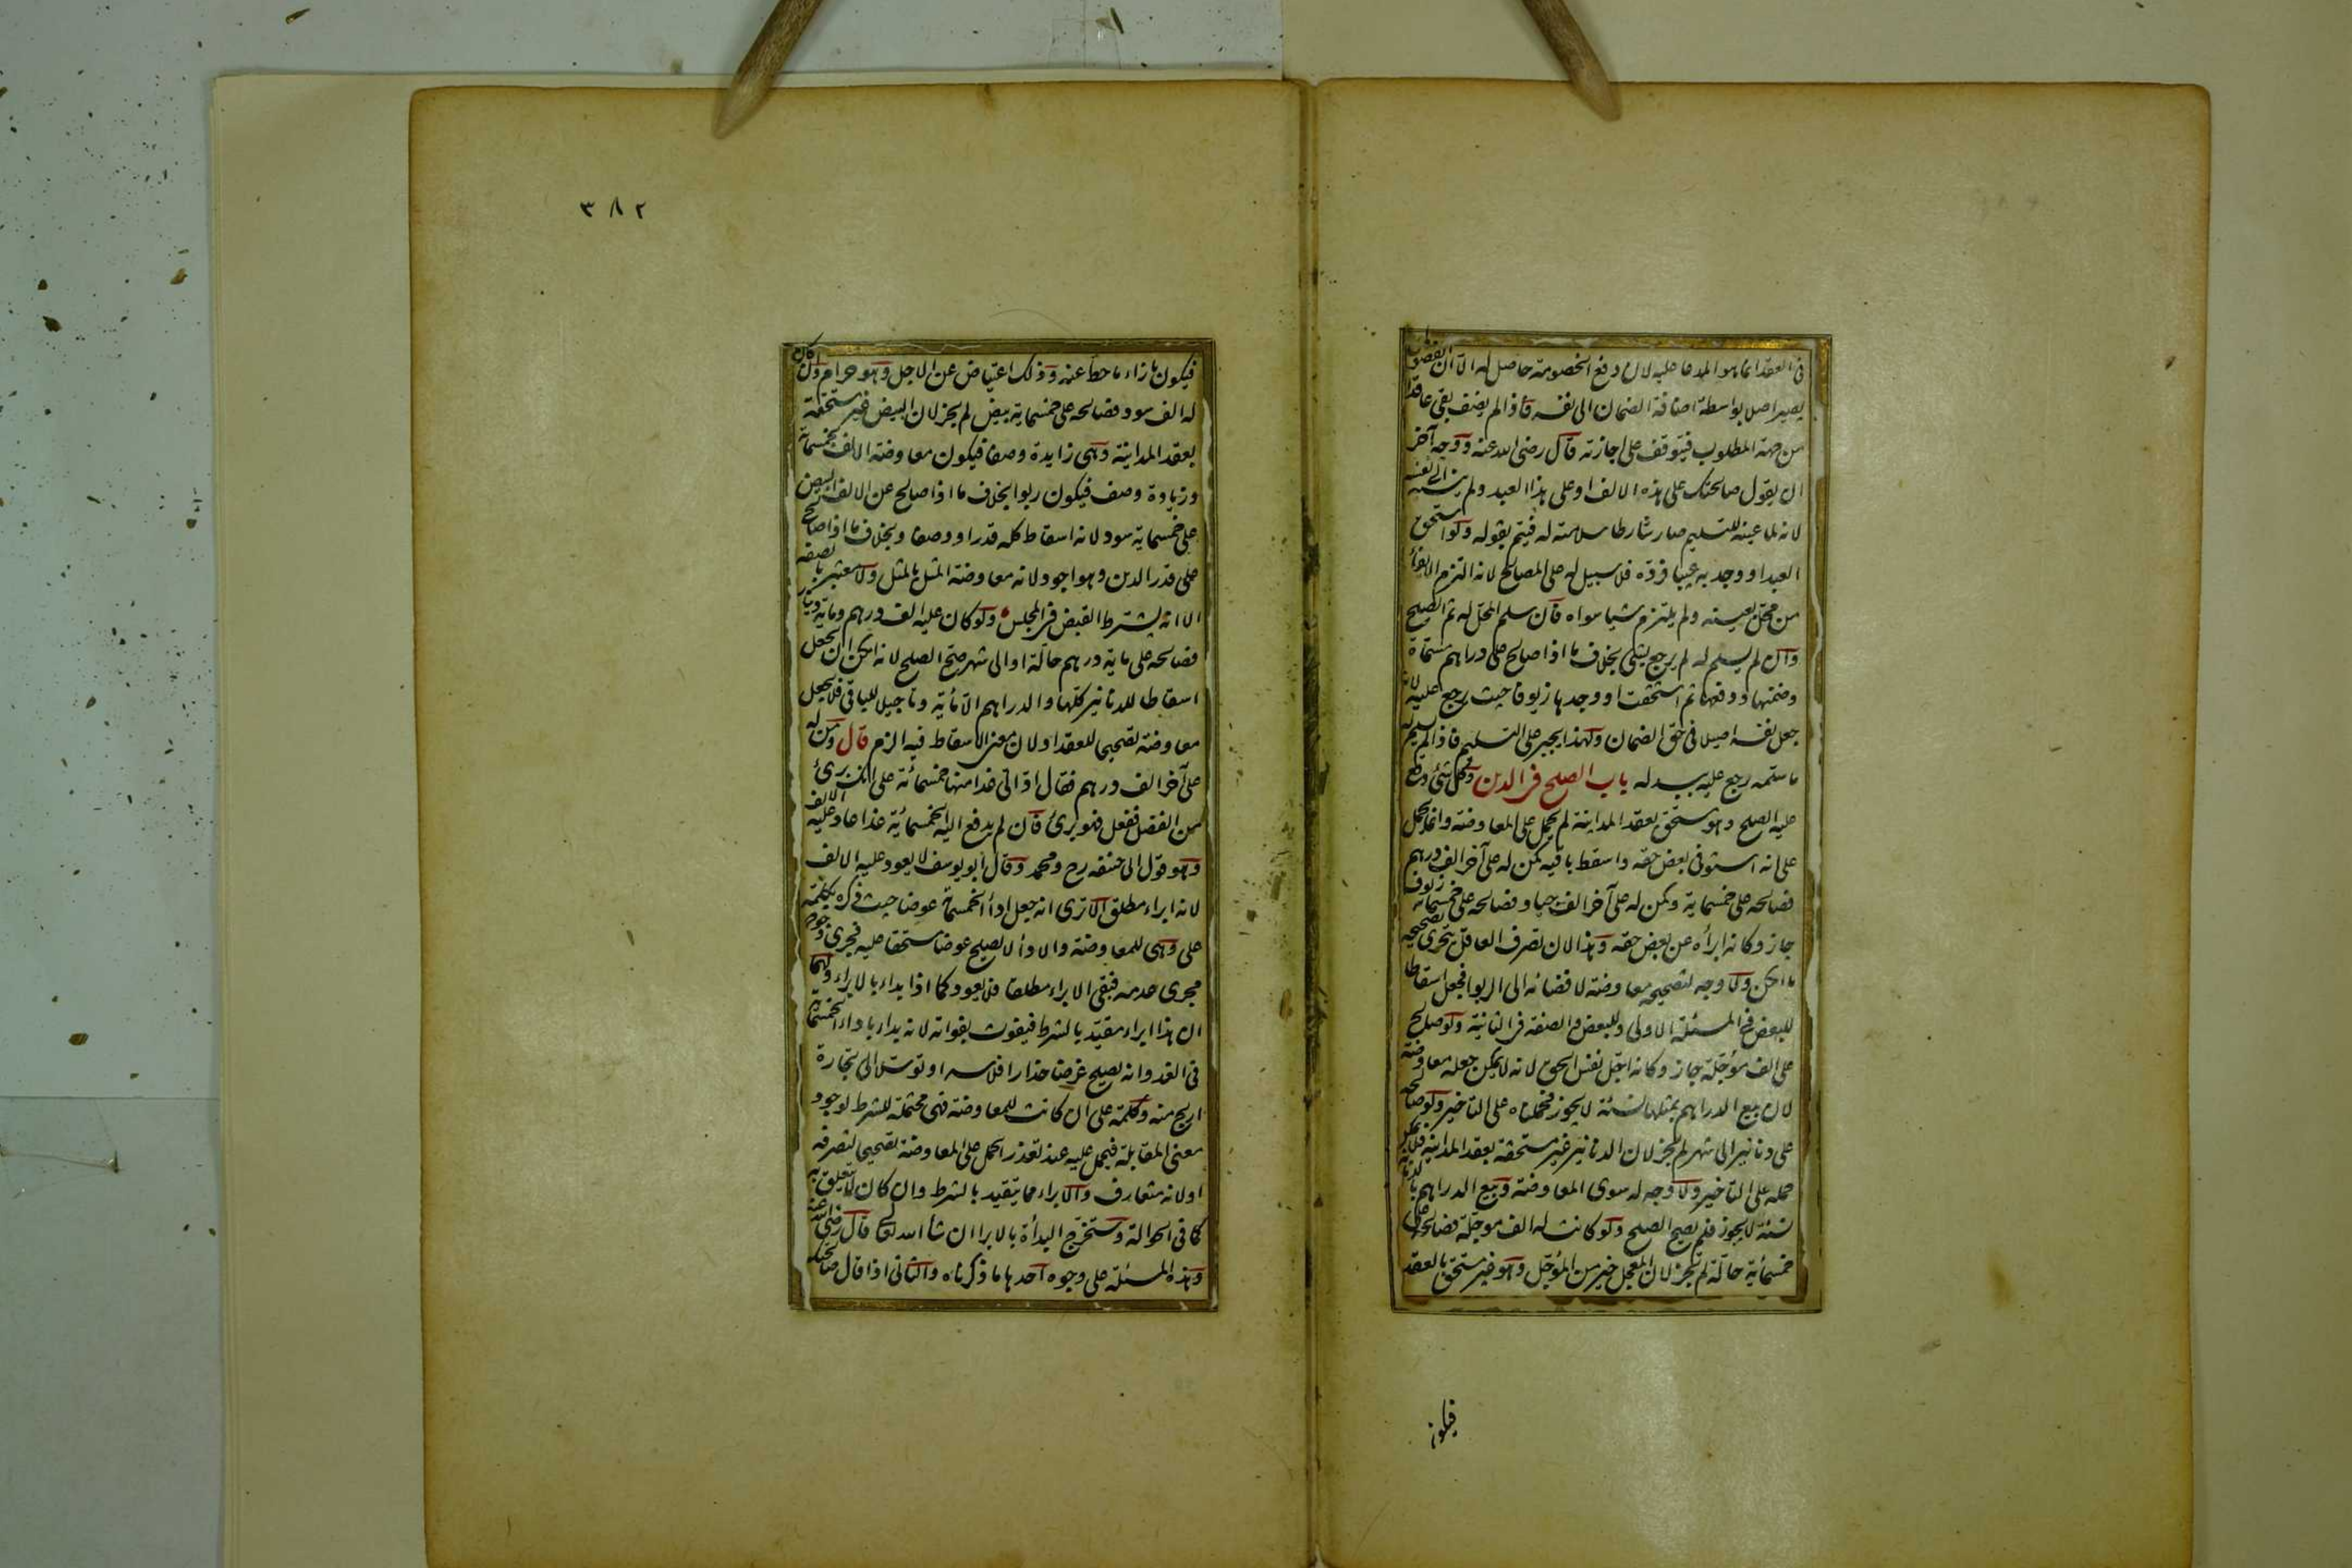 فى العقد انما هو المدعا عليه لان دفع الخصومة حاصل له الا ان الفضولى
يصير اصلا بواسطة اضافة الضمان الى نفسه فاذا لم يضف بقى عاقدا
من جهة المطلوب فيتوقف على اجازته قال رضى الله عنه ووجه آخر
ان يقول صالحتك على هذه الالف او على هذا العبد ولم ينسبه الى نفسه
لانه لما عينه للتسليم صار شارطا سلامته له فيتم بقوله ولو استحق
العبد او وجد به عيبا فرده فلا سبيل له على المصالح لانه التزم الايفاء
من محل بعينه ولم يلتزم شيا سواه فان سلم المحل له تم الصلح
وان لم يسلم له لم يرجع بشئ بخلاف ما اذا صالح على دراهم مسماة
وضمنها ودفعها ثم استحقت او وجدها زيوفا حيث رجع عليه لانه
جعل نفسه اصيلا فى حق الضمان ولهذا يجبر على التسليم فاذا لم يسلم له
ما سلمه رجع عليه ببدله باب الصلح فى الدين وكل شئ وقع
عليه الصلح وهو مستحق بعقد المداينة لم يحمل على المعاوضة وانما يحمل
على انه استوفى بعض حقه واسقط باقيه كمن له على آخر الف درهم
فصالحه على خمسماية وكمن له على آخر الف جياد فصالحه على خمسمائة زيوف
جاز وكانه ابرأه عن بعض حقه وهذا لان تصرف العاقل يتحرى تصحيحه
ما امكن ولا وجه لتصحيحه معاوضة لافضائه الى الربوا فجعل اسقاطا
للبعض فى المسئلة الاولى وللبعض والصفة فى الثانية ولو صالح
على الف مؤجلة جاز وكانه اجل نفس الحق لانه لا يمكن جعله معاوضة
لان بيع الدراهم بمثلها نسئة لا يجوز فحملناه على التاخير ولو صالحه
على دنانير الى شهر لم يجز لان الدنانير غير مستحقة بعقد المداينة فلا يمكن
حمله على التاخير ولا وجه له سوى المعاوضة وبيع الدراهم بالدنانير
نسئة لا يجوز فلم يصح الصلح ولو كانت له الف موجلة فصالحه على
خمسمأية حالة لم يجز لان المعجل خير من المؤجل وهو غير مستحق بالعقد
فيكون
٣٨٢
فيكون بازاء ما حط عنه وذلك اعتياض عن الاجل وهو حرام وان كان
له الف سود فصالحه على خمسماية بيض لم يجز لان البيض غير مستحقة
بعقد المداينة وهى زايدة وصفا فيكون معاوضة الالف بخمسماية
وزيادة وصف فيكون ربوا بخلاف ما اذا صالح عن الالف البيض
على خمسماية سود لانه اسقاط كله قدرا ووصفا وبخلاف ما اذا صالح
على قدر الدين وهو اجود لانه معاوضة المثل بالمثل ولا معتبر بالصفة
الا انه يشترط القبض فى المجلس ولو كان عليه الف درهم وماية دينار
فصالحه على ماية درهم حالة او الى شهر صح الصلح لانه امكن ان يجعل
اسقاطا للدنانير كلها والدراهم الا مأية وتاجيلا للباقى فلا يجعل
معاوضة تصحيحا للعقد او لان معنى الاسقاط فيه الزم قال ومن له
على آخر الف درهم فقال اد الى غدا منها خمسمائة على انك برئ
من الفضل ففعل فهو برئ فان لم يدفع اليه الخمسمائية غدا عاد عليه الالف
وهو قول ابى حنيفه رح ومحمد وقال ابو يوسف لا يعود عليه الالف
لانه ابراء مطلق الا ترى انه جعل اداأ الخمسمائة عوضا حيث ذكره بكلمة
على وهى للمعاوضة والادأ لا يصلح عوضا مستحقا عليه فجرى وجوده
مجرى عدمه فبقى الابراء مطلقا فلا يعود كما اذا بداء بالابراء ولهما
ان هذا ابراء مقيد بالشرط فيفوت بفواته لانه بداء باداء الخمسمائة
فى الغد وانه يصلح غرضا حذار افلاسه او توسلا الى تجارة
اربح منه وكلمة على ان كانت للمعاوضة فهى محتملة للشرط لوجود
معنى المقابلة فيحمل عليه عند تعذر الحمل على المعاوضة تصحيحا لتصرفه
او لانه متعارف والابراء مما يتقيد بالشرط وان كان لا يتعلق به
كما فى الحوالة وستخرج البدأة بالابرا ان شأ الله تعالى قال رضى الله عنه
وهذه المسئلة على وجوه احدها ما ذكرناه والثانى اذا قال صالحتك